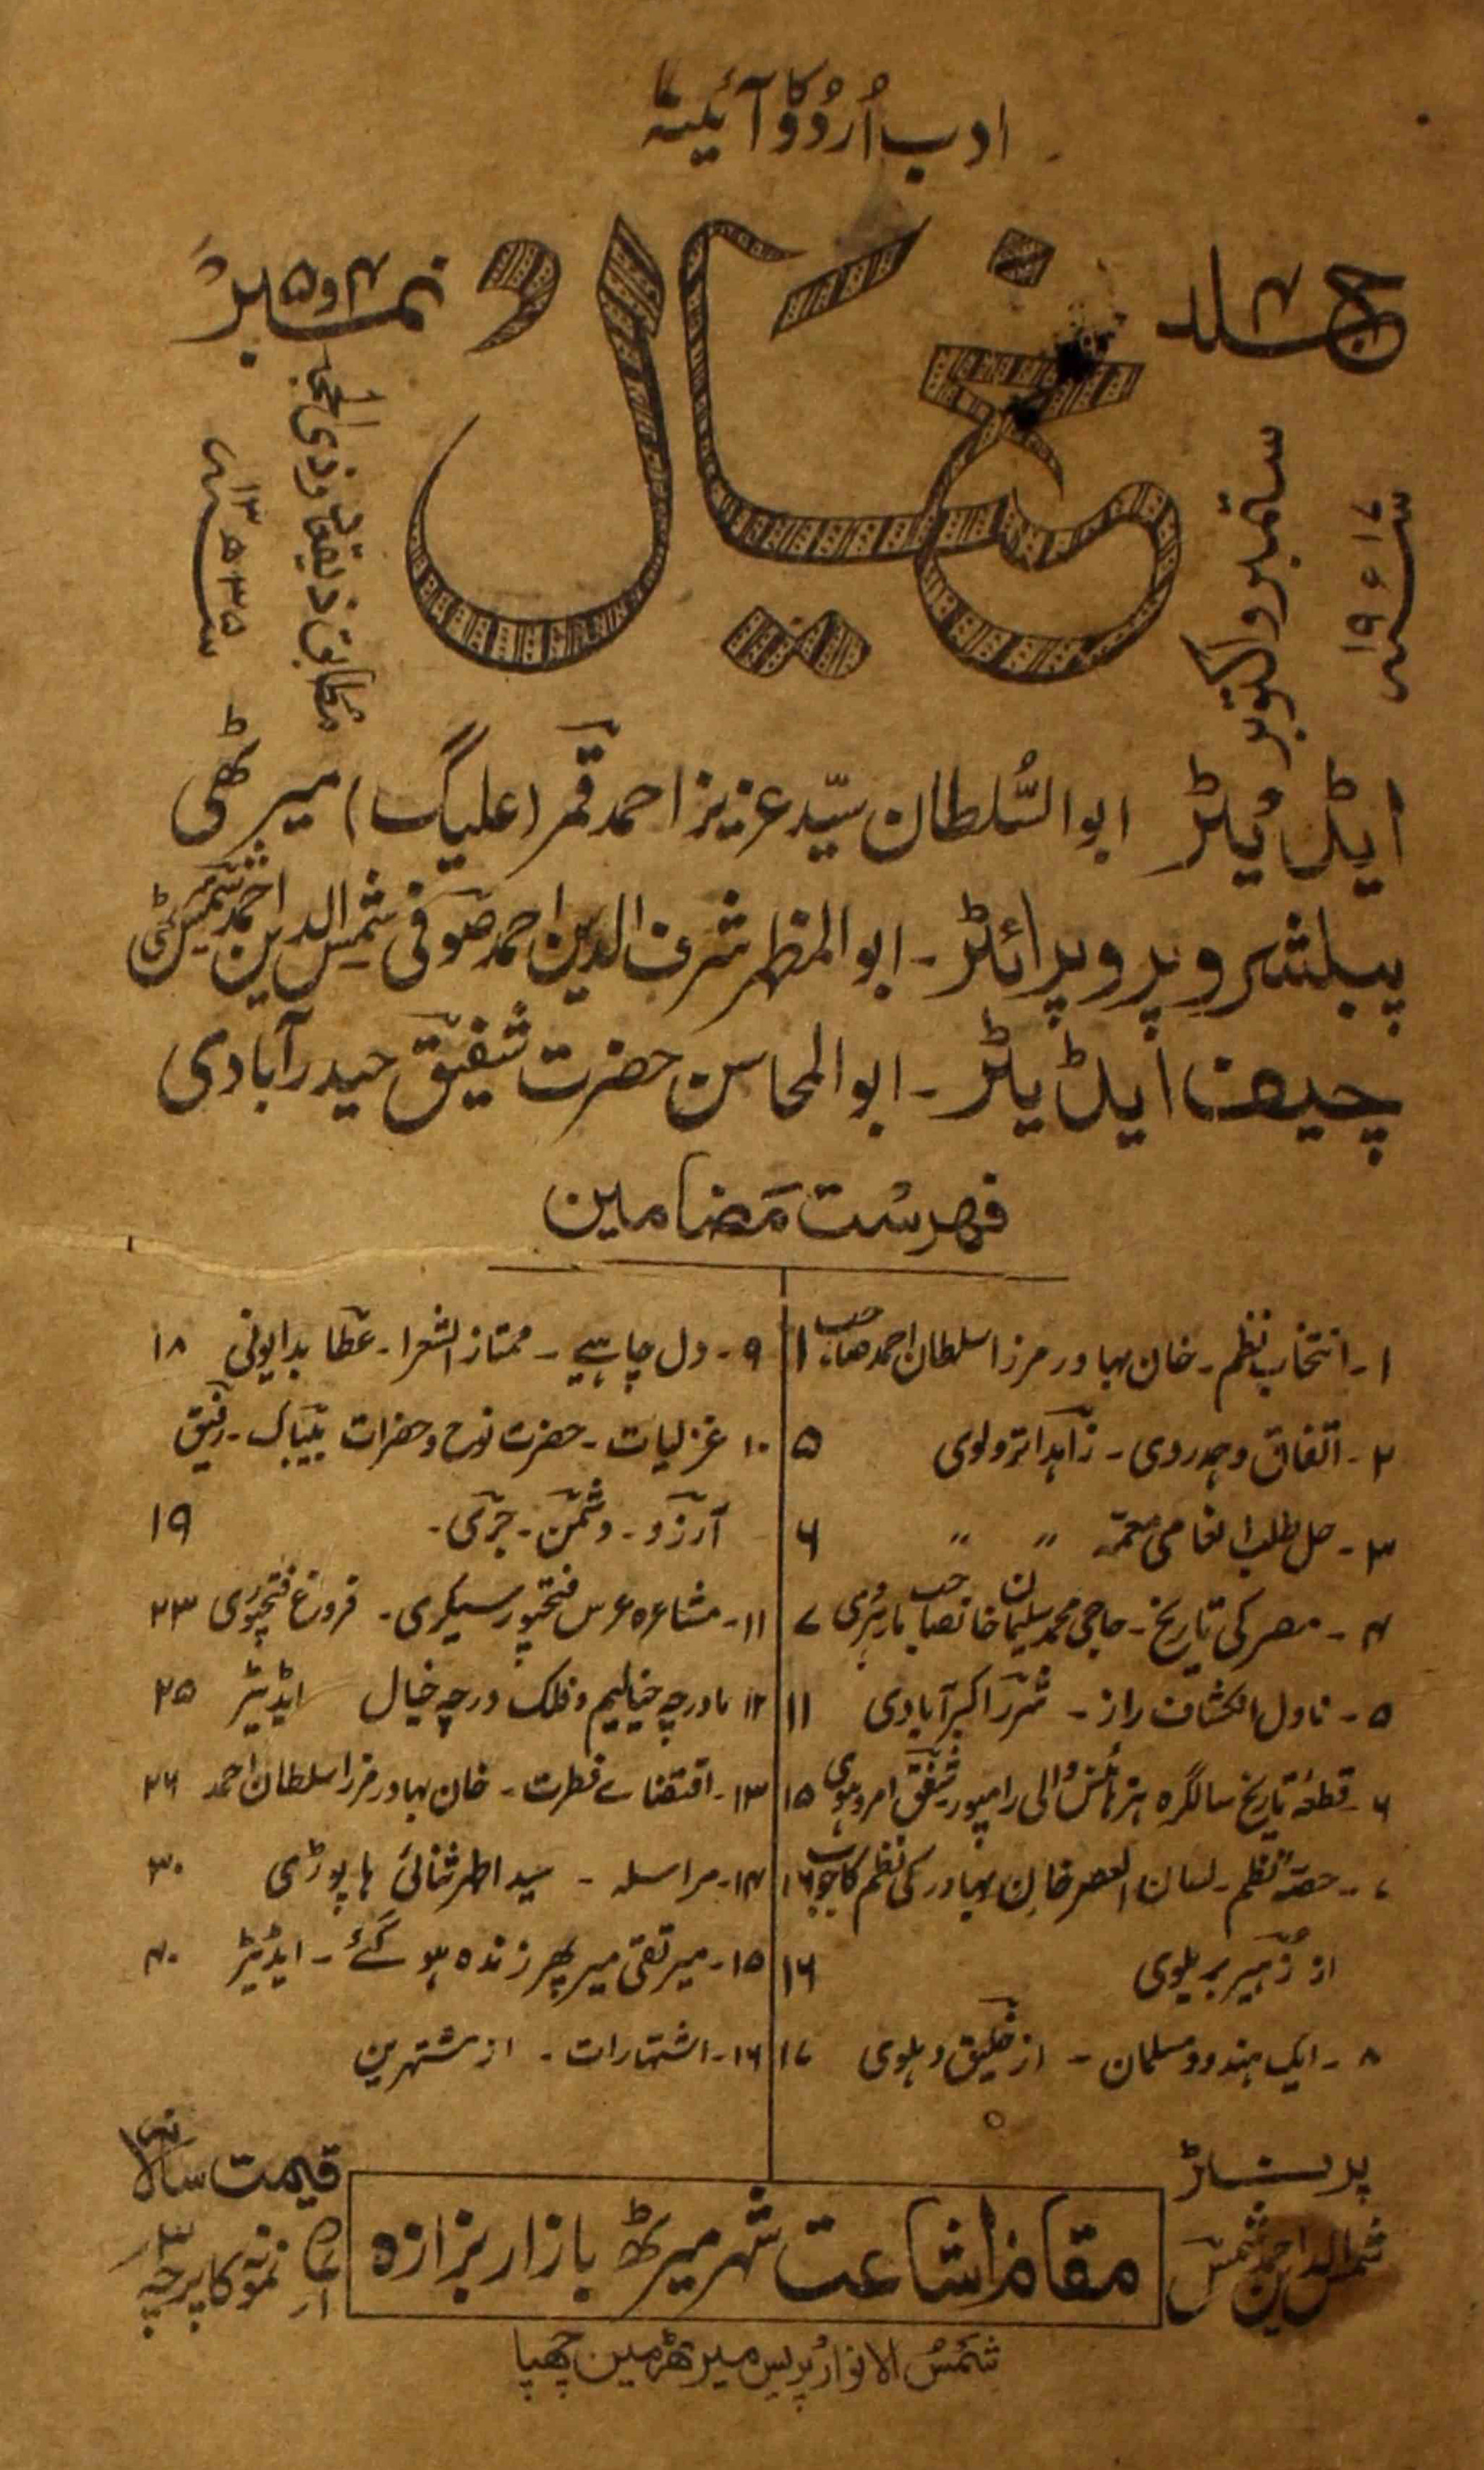 ادب اُردُو کا آئینہ
جلد ۴
خیال
نمبر ۴ و ۵
ستمبر و اکتوبر
سنہ ۱۹۱۷ء
مطابق ذیقعد و ذی الحجہ
سنہ ۱۳۳۵ھ
ایڈیٹر ابو السُّلطان سیّد عزیز احمد قمر (علیگ) میرٹھی
پبلشر و پروپرائٹر - ابو المظہر شرف الدین احمد صوفی شمس الدین احمد شمس
چیف ایڈیٹر - ابو المحاسن حضرت شفیق حیدرآبادی
فہرست مضامین
۱ - انتخاب نظم - خان بہادر مرزا سلطان احمد صاحب ۱
۲ - اتفاق و ہمدردی - زاہد اترولوی ۵
۳ - حل طلب انعامی معمّہ " " ۶
۴ - مصر کی تاریخ - حاجی محمد سلیمان خانصاحب مارہروی ۷
۵ - ناول انکشاف راز - شرر اکبرآبادی ۱۱
۶ - قطعۂ تاریخ سالگرہ ہزہائنس والی رامپور شفق امروہوی ۱۵
۷ - حصۂ نظم - لسان العصر خان بہادر کی نظم کا جواب ۱۶
از زہیر بریلوی ۱۶
۸ - ایک ہندو و مسلمان - از خلیق دہلوی ۱۷
۹ - دل چاہیے - ممتاز الشعرا - عطا بدایونی ۱۸
۱۰ غزلیات - حضرت نوح و حضرات بیباک - رفیق
آرزو - دشمن - جرمی - ۱۹
۱۱ - مشاعرہ عرس فتحپور سیکری - فروغ فتحپوری ۲۳
۱۲ مادرچہ خیالیم و فلک درچہ خیال ایڈیٹر ۲۵
۱۳ - اقتضاے فطرت - خان بہادر مرزا سلطان احمد ۲۶
۱۴ - مراسلہ - سید اطہر ثنائی ہاپوڑی ۳۰
۱۵ - میر تقی میر پھر زندہ ہو گئے - ایڈیٹر ۴۰
۱۶ - اشتہارات - از مشتہرین
پرنٹر
شمس الدین احمد شمس
مقام اشاعت شہر میرٹھ بازار بزازہ
قیمت سالانہ
نمونہ کا پرچہ
شمس الانوار پریس میرٹھ مین چھپا